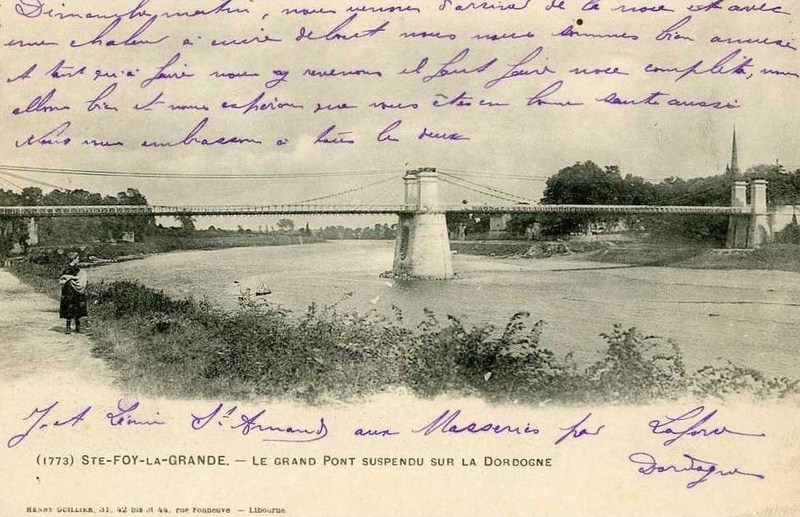 Dimanche matin, nous venons d'arriver de la noce et avec
une chaleur à cuire debout nous nous sommes bien amusé
A tant qu'à faire nous y revenons il faut faire noce complète, nous
allons bien et nous espérons que vous êtes en bonne santé aussi
Nous vous embrassons à tous les deux
J. et A Léonie St Armand aux Masseries par Laforce
Dordogne
(1773) STE-FOY-LA-GRANDE. — LE GRAND PONT SUSPENDU SUR LA DORDOGNE
HENRY GUILLIER, 31, 42 bis et 44, rue Fonneuve — Libourne